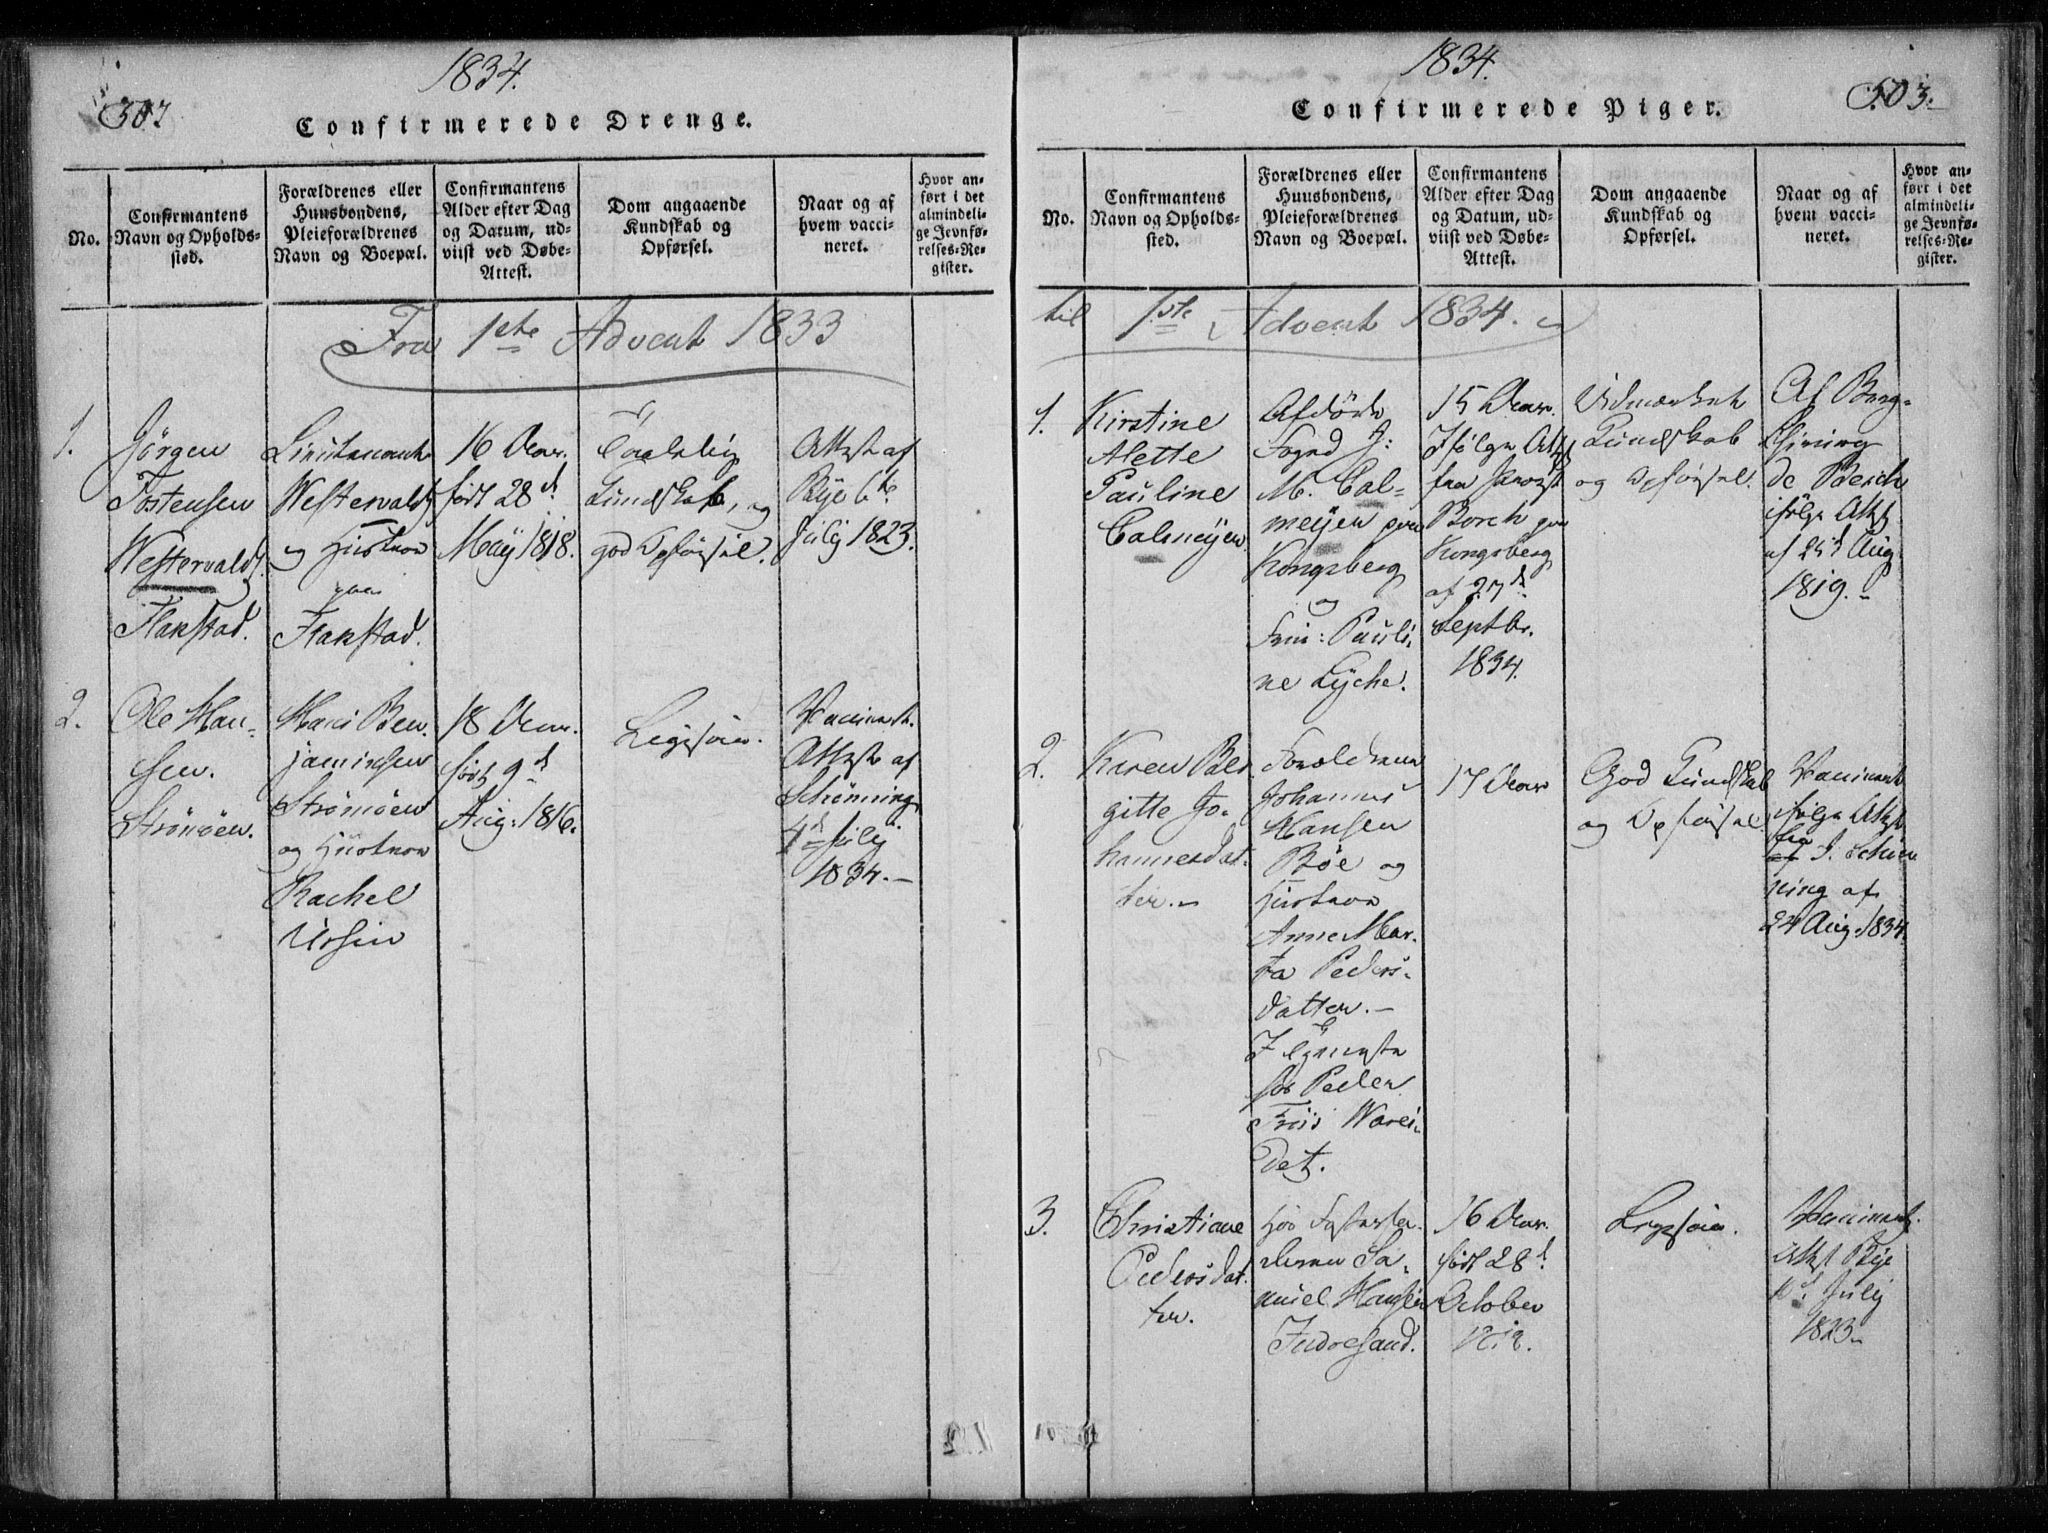 1834.
507
Confirmerede Drenge.
No.
Confirmantens
Navn og Opholds-
sted.
Forældrenes eller
Huusbondens,
Pleieforældrenes
Navn og Boepæl.
Confirmantens
Alder efter Dag
og Datum, ud-
viist ved Døbe-
Attest.
Dom angaaende
Kundskab og
Opførsel.
Naar og af
hvem vacci-
neret.
Hvor an-
ført i det
almindeli-
ge Jevnfø-
relses-Re-
gister.
Fra 1ste Advent 1833
1.
Jörgen
Tostensen
Westervald
Flakstad.
Lieutenant
Westervald
og Hustroe
paa
Flakstad.
16 Aar.
født 28d
May 1818.
Taalelig
Kundskab, og
god Opførsel.
Attest af
Bye 6te
July 1823.
2.
Ole Han-
sen.
Strömöen.
Hans Ben-
jaminsen
Strömöen
og Hustroe
Rachel
Ursin
18 Aar.
født 9d
Aug: 1816.
Ligesaa.
Vaccinat.
Attest af
Schönning
4d July
1834.-
1834.
503.
Confirmerede Piger.
No.
Confirmantens
Navn og Opholds-
sted.
Forældrenes eller
Huusbondens,
Pleieforældrenes
Navn og Boepæl.
Confirmantens
Alder efter Dag
og Datum, ud-
viist ved Døbe-
Attest.
Dom angaaende
Kundskab og
Opførsel.
Naar og af
hvem vacci-
neret.
Hvor an-
ført i det
almindeli-
ge Jevnfø-
relses-Re-
gister.
til 1ste Advent 1834.
1.
Kirstine
Alette
Pauline
Calmeyer
Afdöde
Foged J:
M. Cal-
meyer paa
Kongsberg
og
Frue: Pauli-
ne Lyche.
15 Aar.
Ifølge Attest
fra Provst
Borch paa
Kongsberg
af 27d
Septbr.
1834.
Udmærket
Kundskab
og Opførsel.
Af Berg-
de Besche
ifølge Attest
af 25d Aug.
1819.-
2.
Karen Ber
gitte Jo-
hannesdat-
ter.-
Forældrene
Johannes
Hansen
Böe og
Hustroe
Anne Mar-
ta Peders-
datter.-
I Tjeneste
hos Peder
Friis Warei-
det.
17 Aar
God Kundskab
og Opførsel.
Vaccineret
ifølge Attest
fra J. Schön
ning af
22 Aug. 1834.
3.
Christiane
Pedersdat-
ter.
Hos Fosterfor-
ældrene Sa-
muel Hansen
Indresand.
16 Aar.
født 28d
October
1818.
Ligesaa.
Vaccinat.
Attest Bye
July
1823.-